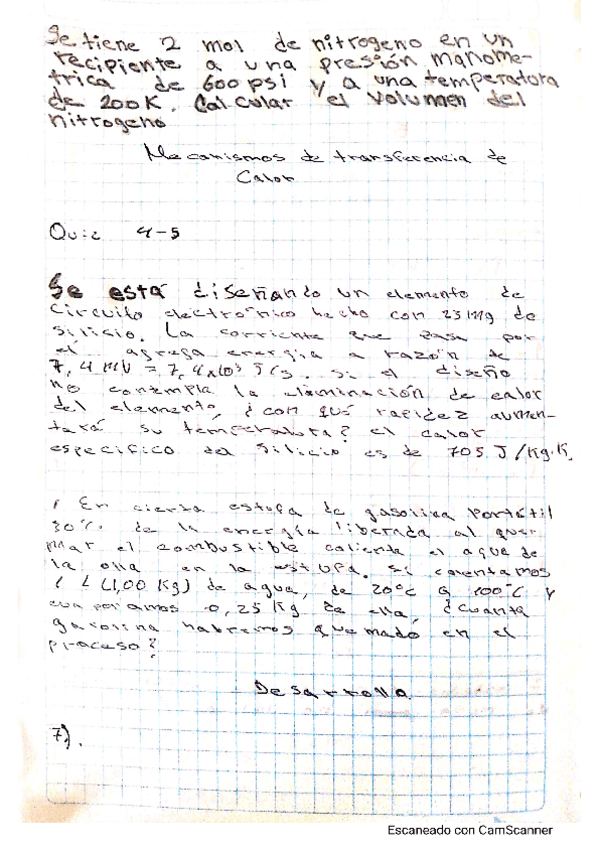 Se tiene 2 mol de nitrogeno en un
recipiente a una presión manome-
trica de 600 psi y a una temperatura
de 200K. Calcular el volumen del
nitrogeno
Mecanismos de transferencia de
Calor
Quiz 4-5
Se está diseñando un elemento de
circuito electrónico hecho con 23 mg de
silicio. La corriente que pasa por
el agrega energía a razón de
7,4 mW = 7,4x10³ J/s. si el diseño
no contempla la eliminación de calor
del elemento, ¿con qué rapidez aumen-
tará su temperatura? el calor
especifico del silicio es de 705 J/Kg.K.
1 En cierta estufa de gasolina portátil
30% de la energía liberada al que-
mar el combustible calienta el agua de
la olla en la estufa. si calentamos
1 L (1,00 Kg) de agua, de 20°C a 100°C y
evaporamos 0,25 Kg de ella, ¿cuanta
gasolina habremos quemado en el
proceso?
Desarrollo
7).
Escaneado con CamScanner